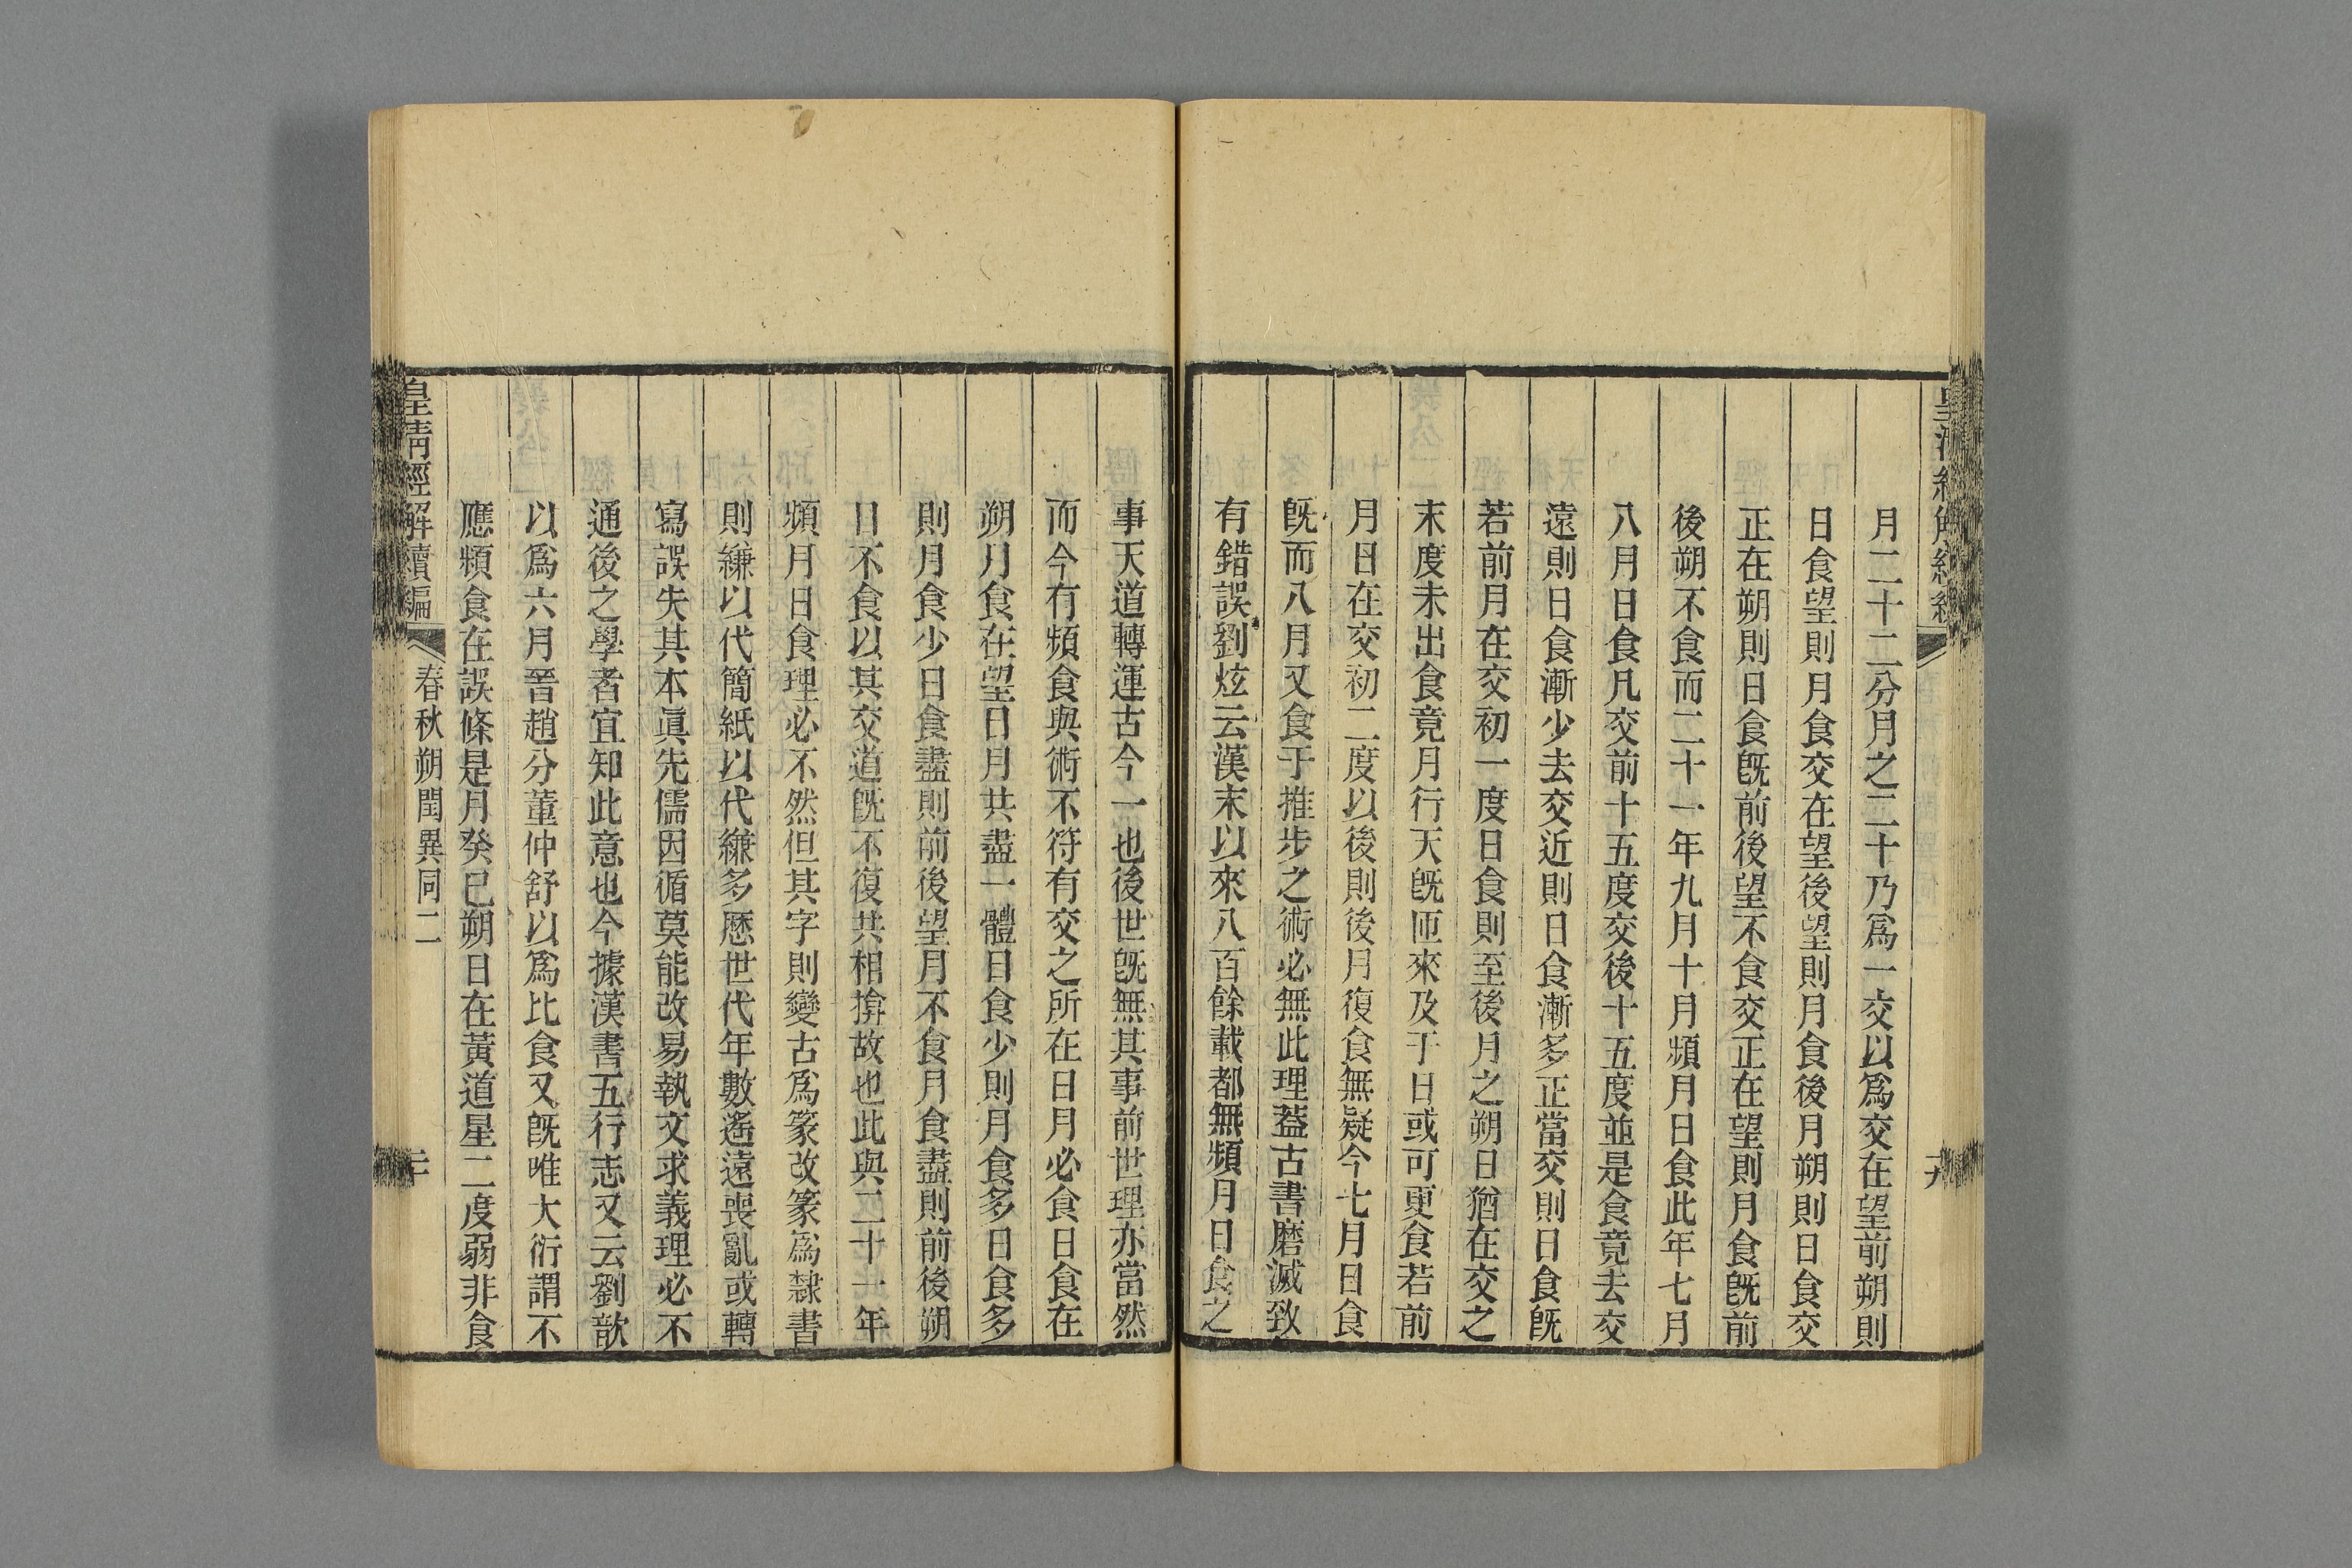 月二十二分月之二十乃爲一交以爲交在望前朔則
日食望則月食交在望後望則月食後月朔則日食交
正在朔則日食旣前後望不食交正在望則月食旣前
後朔不食而二十一年九月十月頻月日食此年七月
八月日食凡交前十五度交後十五度並是食竟去交
遠則日食漸少去交近則日食漸多正當交則日食旣
若前月在交初一度日食則至後月之朔日猶在交之
末度未出食竟月行天旣匝來及于日或可更食若前
月日在交初二度以後則後月復食無疑今七月日食
旣而八月又食于推步之術必無此理蓋古書磨滅致
有錯誤劉炫云漢末以來八百餘載都無頻月日食之
事天道轉運古今一也後世旣無其事前世理亦當然
而今有頻食與術不符有交之所在日月必食日食在
朔月食在望日月共盡一體日食少則月食多日食多
則月食少日食盡則前後望月不食月食盡則前後朔
日不食以其交道旣不復共相揜故也此與二十一年
頻月日食理必不然但其字則變古爲篆改篆爲隸書
則縑以代簡紙以代縑多歷世代年數遙遠喪亂或轉
寫誤失其本眞先儒因循莫能改易執文求義理必不
通後之學者宜知此意也今據漢書五行志又云劉歆
以爲六月晉趙分董仲舒以爲比食又旣唯大衍謂不
應頻食在誤條是月癸巳朔日在黃道星二度弱非食
皇清經解續編
春秋朔閏異同二